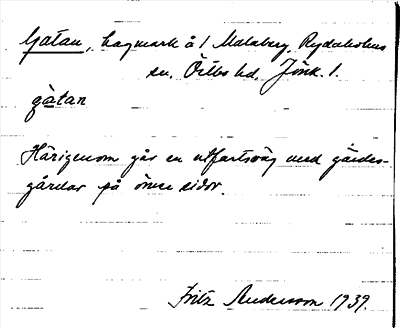 Gatan, hagmark å 1 Malaberg, Rydaholms
sn, Östbo hd, Jönk. l.
gàtan
Härigenom går en utfartsväg med gärdes-
gårdar på ömse sidor.
Fritz Andersson 1939.